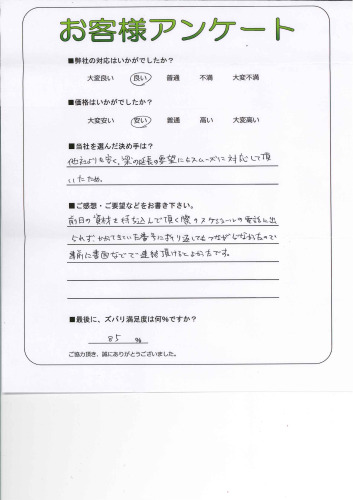 お客様アンケート
■弊社の対応はいかがでしたか?
大変良い 良い 普通 不満 大変不満
■価格はいかがでしたか?
大変安い 安い 普通 高い 大変高い
■当社を選んだ決め手は?
他社よりも安く、梁の延長の要望にもスムーズに対応して頂
いたため。
■ご感想・ご要望などをお書き下さい。
前日の資材を持ち込んで頂く際のスケジュールの電話に出
られず、かかってきていた番号に折り返してもつながらなかったので
事前に書面などで連絡頂けるとよかったです。
■最後に、ズバリ満足度は何%ですか?
85 %
ご協力頂き、誠にありがとうございました。